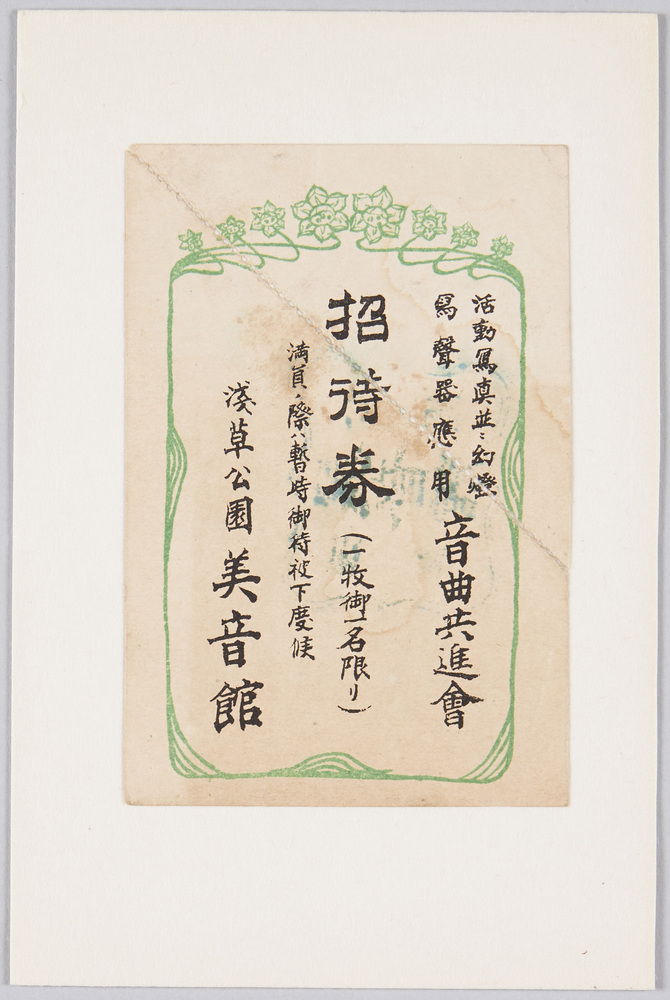 活動寫真並ニ幻燈
寫聲器應用
音曲共進會
招待券
(一枚御一名限リ)
満員ノ際ハ暫時御待被下度候
淺草公園 美音館